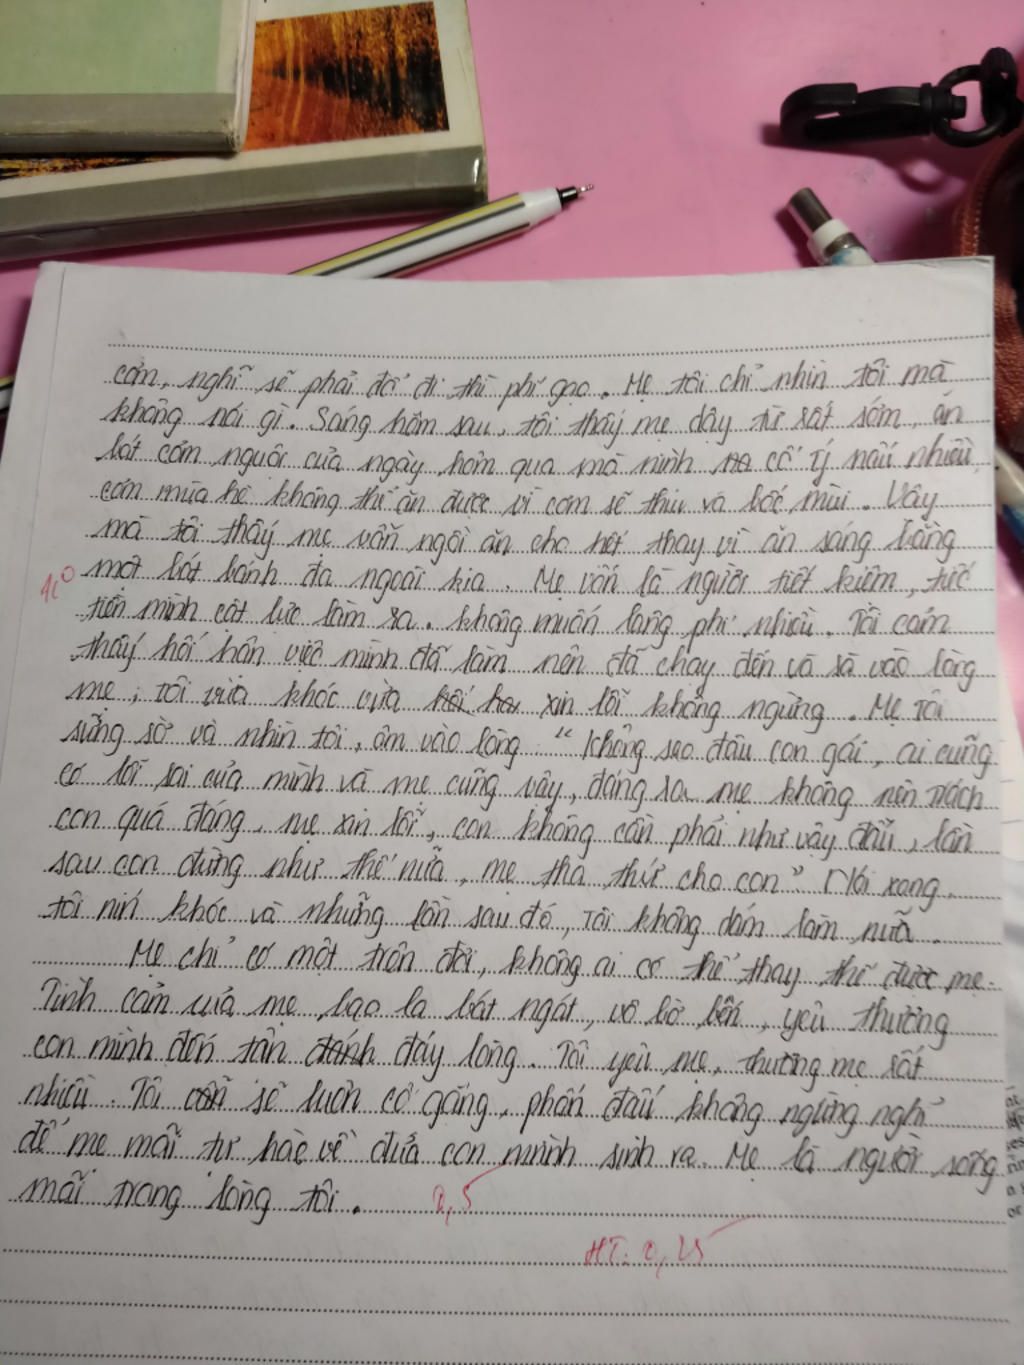 cơm, nghĩ sẽ phải đổ đi thì phí gạo. Mẹ tôi chỉ nhìn tôi mà
không nói gì. Sáng hôm sau, tôi thấy mẹ dậy từ rất sớm, ăn
bát cơm nguội của ngày hôm qua mà mình cố ý nấu nhiều,
cơm mùa hè không thể ăn được vì cơm sẽ thiu và bốc mùi. Vậy
mà tôi thấy mẹ vẫn ngồi ăn cho hết thay vì ăn sáng bằng
một bát bánh đa ngoài kia. Mẹ vốn là người tiết kiệm, tiếc
tiền mình cật lực làm ra, không muốn lãng phí nhiều. Tôi cảm
thấy hối hận việc mình đã làm nên đã chạy đến và sà vào lòng
mẹ, tôi vừa khóc vừa xin lỗi không ngừng. Mẹ tôi
sững sờ và nhìn tôi, ôm vào lòng: "Không sao đâu con gái, ai cũng
có lỗi sai của mình và mẹ cũng vậy, đáng ra mẹ không nên trách
con quá đáng, mẹ xin lỗi, con không cần phải như vậy đâu, lần
sau con đừng như thế nữa, mẹ tha thứ cho con" Nói xong,
tôi nín khóc và những lần sau đó, tôi không dám làm nữa.
Mẹ chỉ có một trên đời, không ai có thể thay thế được mẹ.
Tình cảm của mẹ bao la bát ngát, vô bờ bến, yêu thương
con mình đến tận đáy lòng. Tôi yêu mẹ, thương mẹ rất
nhiều. Tôi sẽ luôn cố gắng, phấn đấu không ngừng nghỉ
để mẹ mãi tự hào về đứa con mình sinh ra. Mẹ là người sống
mãi trong lòng tôi. 0,5
HT: 0,25